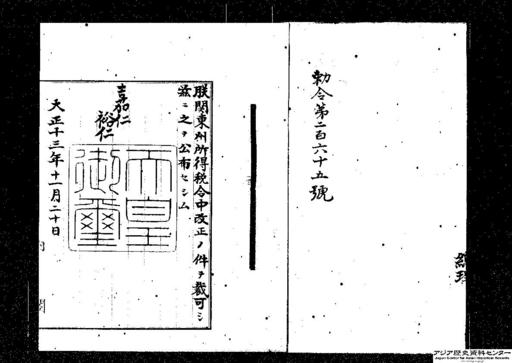 勅令第二百六十五號
朕関東州所得税令中改正ノ件ヲ裁可シ
茲ニ之ヲ公布セシム
嘉仁
裕仁
天皇
御璽
大正十三年十一月二十日
内閣
アジア歴史資料センター
Japan Center for Asian Historical Records